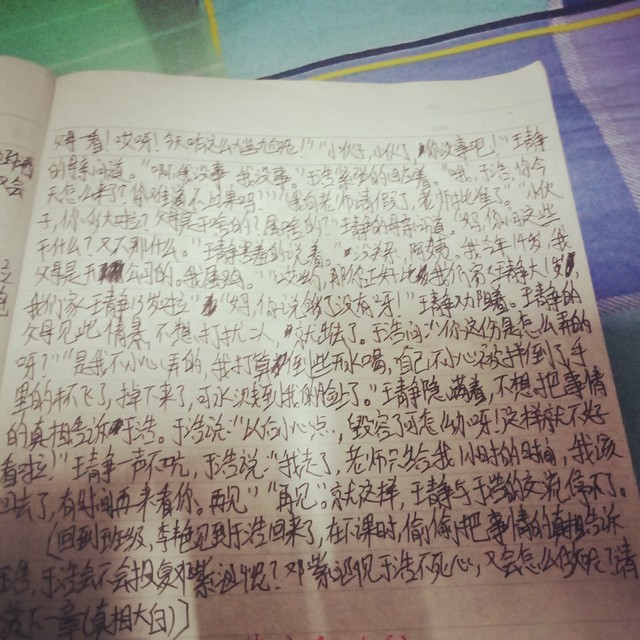 母一看！哎呀！
小伙子，小伙子，你没事吧！"王静
的母亲问道。"啊，我没事，我没事"于浩紧张的
天怎么来了？你难道不上课吗？""我向老师请假了，老师批准了。""小伙
子，你多大啦？父母是干啥的？属啥的？"王静的母亲问道。"妈，你问这些
干什么？又不别什么。"王静害羞的说着。"没关系，阿姨。我今年14岁，我
父母是开公司的。我属鸡。""哎哟，那你正好比我们家王静大1岁，
我们家王静13岁啦""妈，你说够了没有呀！"王静劝阻着。王静的
父母见此情景，不想打扰二人，就走了。于浩问："你这伤是怎么弄的
呀？""是我不小心弄的，我打算倒些开水喝，自己不小心被拌倒了，手
里的杯飞了，掉下来了，可水没到我的脸上了。"王静隐瞒着，不想把事情
的真相告诉于浩。于浩说："以后小心点，毁容了可怎么办呀！这样就不好
看啦！"王静一声不吭，于浩说："我走了，老师只给我1小时的时间，我该
回去了，有时间再来看你。再见""再见"。就这样，王静与于浩的交流停下了。
(回到班级，李艳见到于浩回来了，在下课时，偷偷把事情的真相告诉
于浩，于浩会不会报复邓紫迢呢？邓紫迢见于浩不死心，又会怎么做呢？请
看下一章(真相大白)]